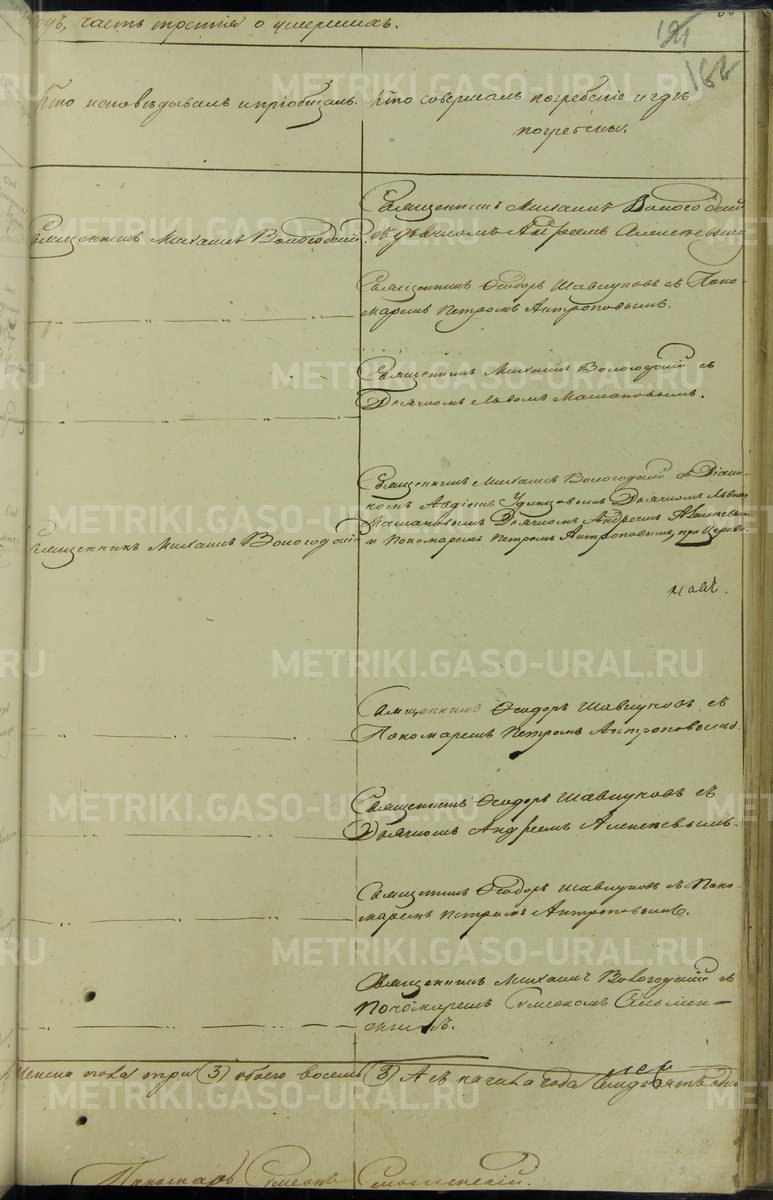 годъ, часть третія о умершихъ.
121
162
Кто исповѣдывалъ и пріобщалъ.
Кто совершалъ погребеніе и гдѣ
погребены.
Священникъ Михаилъ Вологодскій.
Священникъ Михаилъ Вологодскій
съ дьячкомъ Андреемъ Алексѣевымъ
Священникъ Ѳеодоръ Шавкуновъ съ Поно-
маремъ Петромъ Антроповымъ.
Священникъ Михаилъ Вологодскій съ
Дьячкомъ Львомъ Машановымъ.
Священникъ Михаилъ Вологодскій
Священникъ Михаилъ Вологодскій съ Діако-
номъ Авдіемъ Удинцовымъ Дьячкомъ Львомъ
Машановымъ Дьячкомъ Андреемъ Алексѣевымъ
и Пономаремъ Петромъ Антроповымъ, при Церкви
Священникъ Ѳеодоръ Шавкуновъ съ
Пономаремъ Петромъ Антроповымъ.
Священникъ Ѳеодоръ Шавкуновъ съ
Дьячкомъ Андреемъ Алексѣевымъ.
Священникъ Ѳеодоръ Шавкуновъ съ Поно-
маремъ Петромъ Антроповымъ.
Священникъ Михаилъ Вологодскій съ
Пономаремъ Симеономъ
женска пола три (3) обоего восемь (8) А съ начала года
Пономарь Симеонъ
METRIKI.GASO-URAL.RU